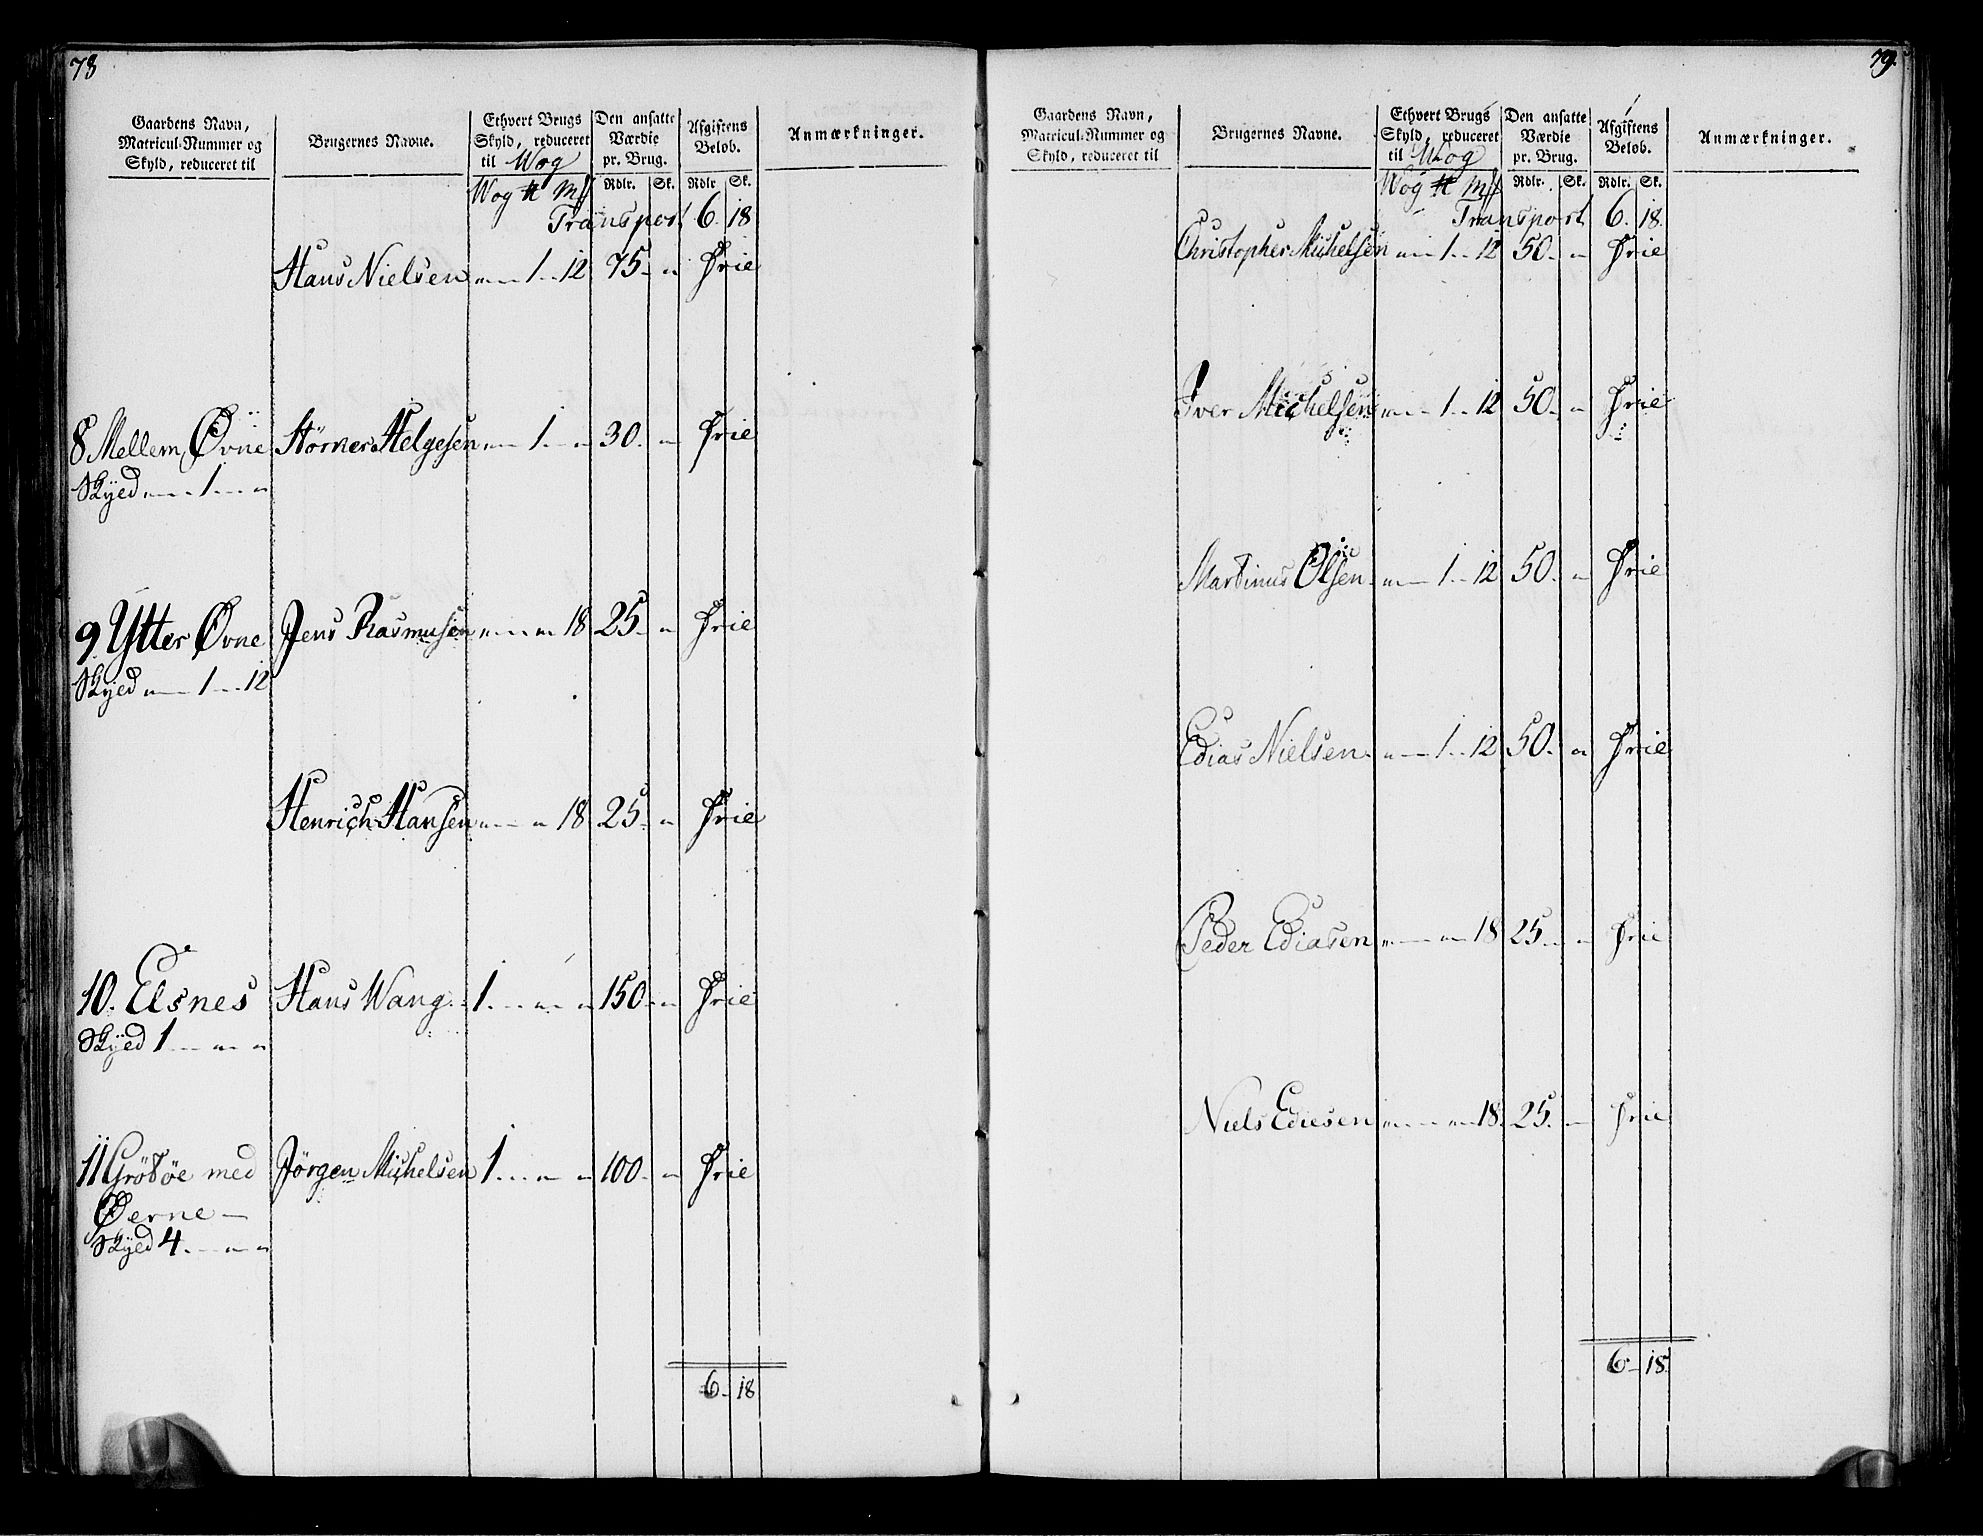 78
Gaardens Navn, Matricul-Nummer og Skyld, reduceret til
Brugernes Navne.
Ethvert Brugs Skyld, reduceret til Wog
Den ansatte Værdie pr. Brug.
Afgiftens Beløb.
Anmærkninger.
Wog ℔ Mk Rdlr. Sk. Rdlr. Sk.
Transport 6. 18
Hans Nielsen „ 1 12 75 „ Frie
8 Mellem Øvne Störner Helgesen „ 1 „ 30 „ Frie
Skyed „ 1 „
9 Ytter Øvne Jens Rasmusen „ „ 18 25 „ Frie
Skyed „ 1 12
Henrich Hansen „ „ 18 25 „ Frie
10. Elsnes Hans Wang 1 „ „ 150 „ Frie
Skyed 1 „ „
11 Grötöe med Jörgen Michelsen 1 „ „ 100 „ Frie
Øerne
Skyed 4 „ „
6 18
79.
Gaardens Navn, Matricul-Nummer og Skyld, reduceret til
Brugernes Navne.
Ethvert Brugs Skyld, reduceret til Wog
Den ansatte Værdie pr. Brug.
Afgiftens Beløb.
Anmærkninger.
Wog ℔ Mk Rdlr. Sk. Rdlr. Sk.
Transport 6. 18
Christopher Michelsen „ 1 12 50 „ Frie
Iver Michelsen „ 1 12 50 „ Frie
Martinus Olsen „ 1 12 50 „ Frie
Edias Nielsen „ 1 12 50 „ Frie
Peder Ediasen „ „ 18 25 „ Frie
Niels Ediesen „ „ 18 25 „ Frie
6 18